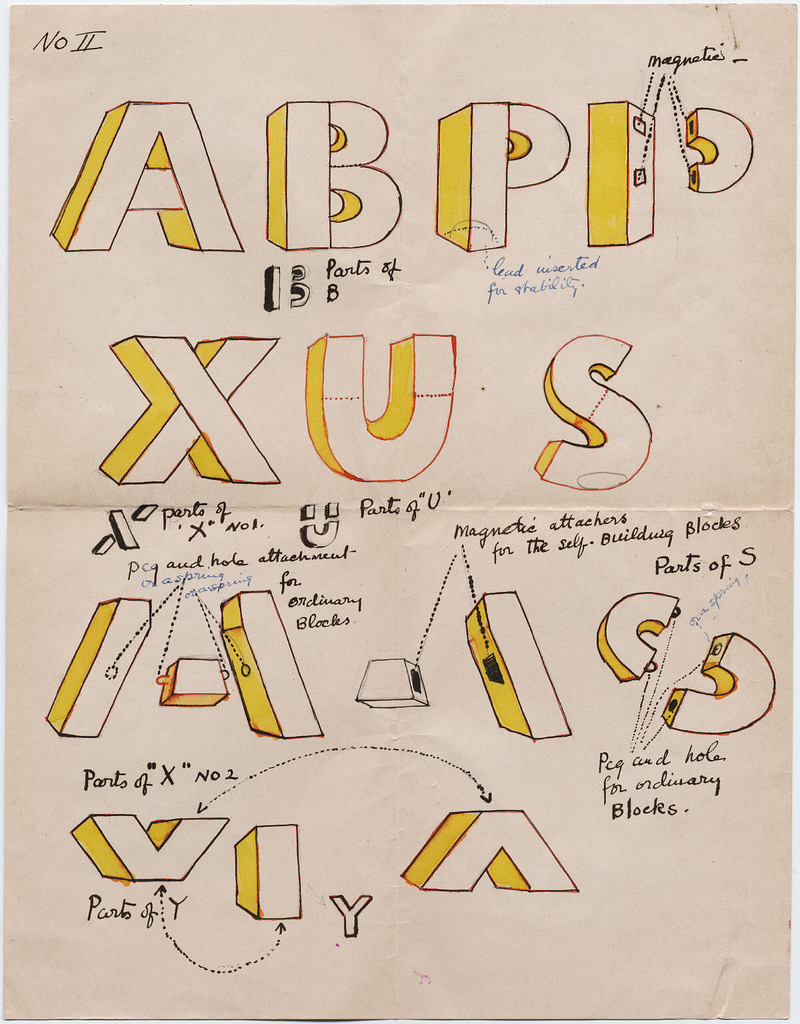 No II
Magnetic –
A B P
Parts of
B
lead inserted
for stability.
X U S
parts of
"X" No1.
Parts of "U"
Magnetic attachers
for the self-Building Blocks
Peg and hole attachment-
or a spring
or a spring
for
ordinary
Blocks.
Parts of S
or a spring
Peg and hole
for ordinary
Blocks.
Parts of "X" No 2
Parts of Y
Y